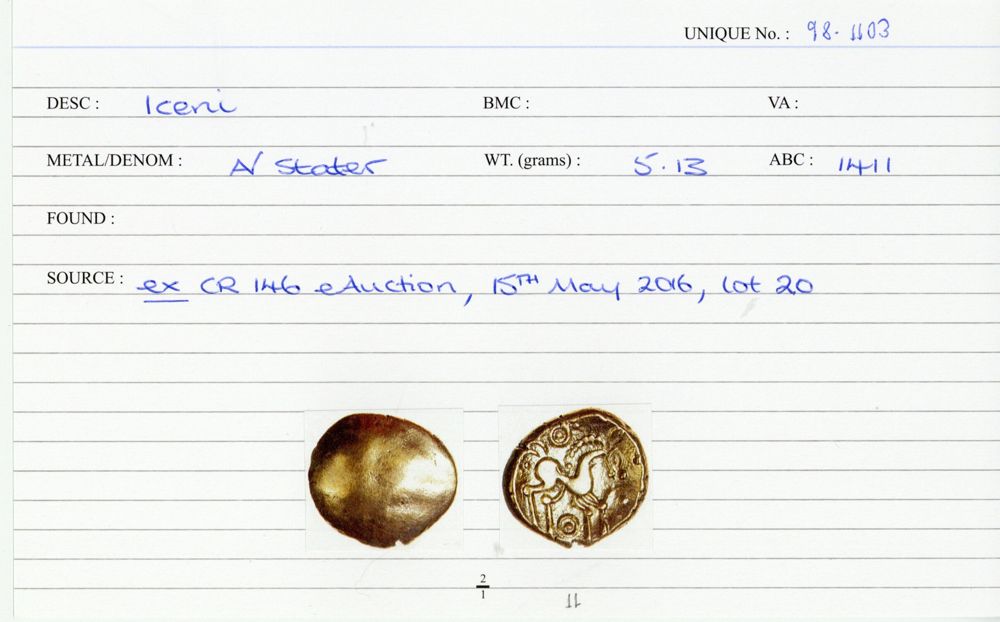 UNIQUE No. : 98.1103
DESC : Iceni BMC : VA :
METAL/DENOM : A/ Stater WT. (grams) : 5.13 ABC : 1411
FOUND :
SOURCE : ex CR 146 eAuction, 15TH May 2016, lot 20
2
1
11